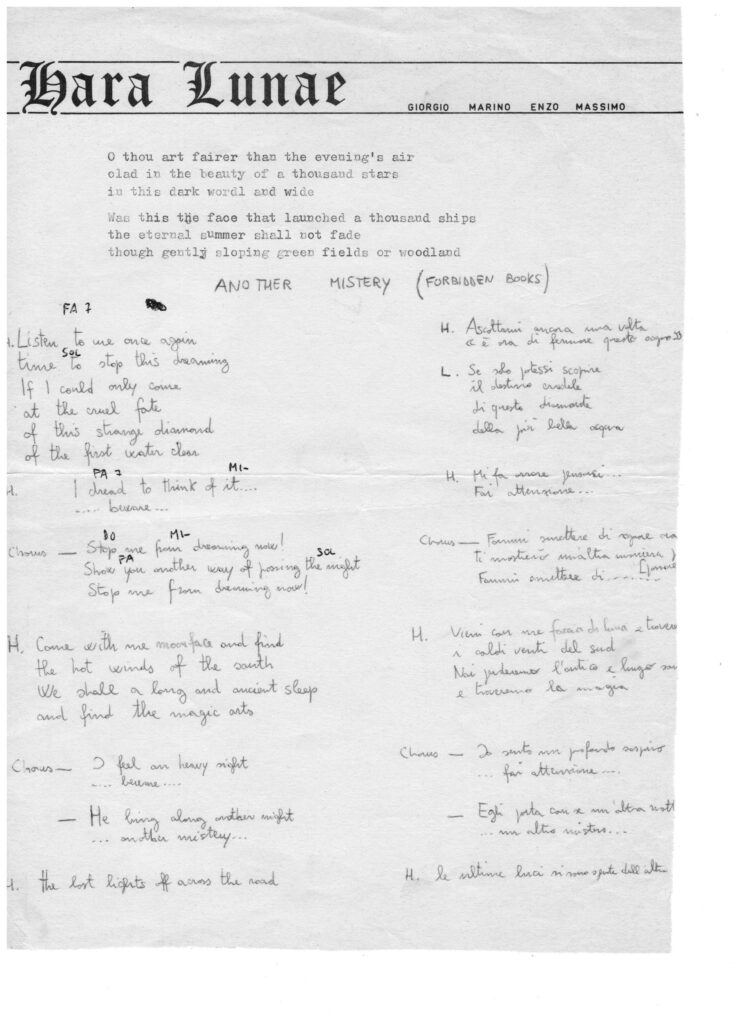 Hara Lunae
GIORGIO MARINO ENZO MASSIMO
O thou art fairer than the evening's air
clad in the beauty of a thousand stars
in this dark wordl and wide
Was this the face that launched a thousand ships
the eternal summer shall not fade
though gently sloping green fields or woodland
ANOTHER MISTERY (FORBIDDEN BOOKS)
FA 7
H. Listen to me once again
SOL
time to stop this dreaming
If I could only come
at the cruel fate
of this strange diamond
of the first water clear
FA 7 MI-
H. I dread to think of it....
..... beware...
DO MI-
Chorus — Stop me from dreaming now!
FA SOL
Show you another way of passing the night
Stop me from dreaming now!
H. Come with me moonface and find
the hot winds of the south
We shall a long and ancient sleep
and find the magic arts
Chorus — I feel an heavy sight
.... beware....
— He bring along another night
... another mistery...
H. the lost lights off across the road
H. Ascoltami ancora una volta
è ora di fermare questo
L. Se solo potessi scoprire
il destino crudele
di questo diamante
della più bella acqua
H. Mi fa male pensarci...
Fai attenzione...
Chorus — Fammi smettere di sognare ora
ti mostrerò un'altra maniera
Fammi smettere di.........
H. Vieni con me faccia di luna e
i caldi venti del sud
Noi l'antico e lungo
e troveremo la magia
Chorus — Io sento un profondo sospiro
... fai attenzione....
— Egli porta con se un'altra
... un altro mistero...
H. le ultime luci si sono spente dall'altra